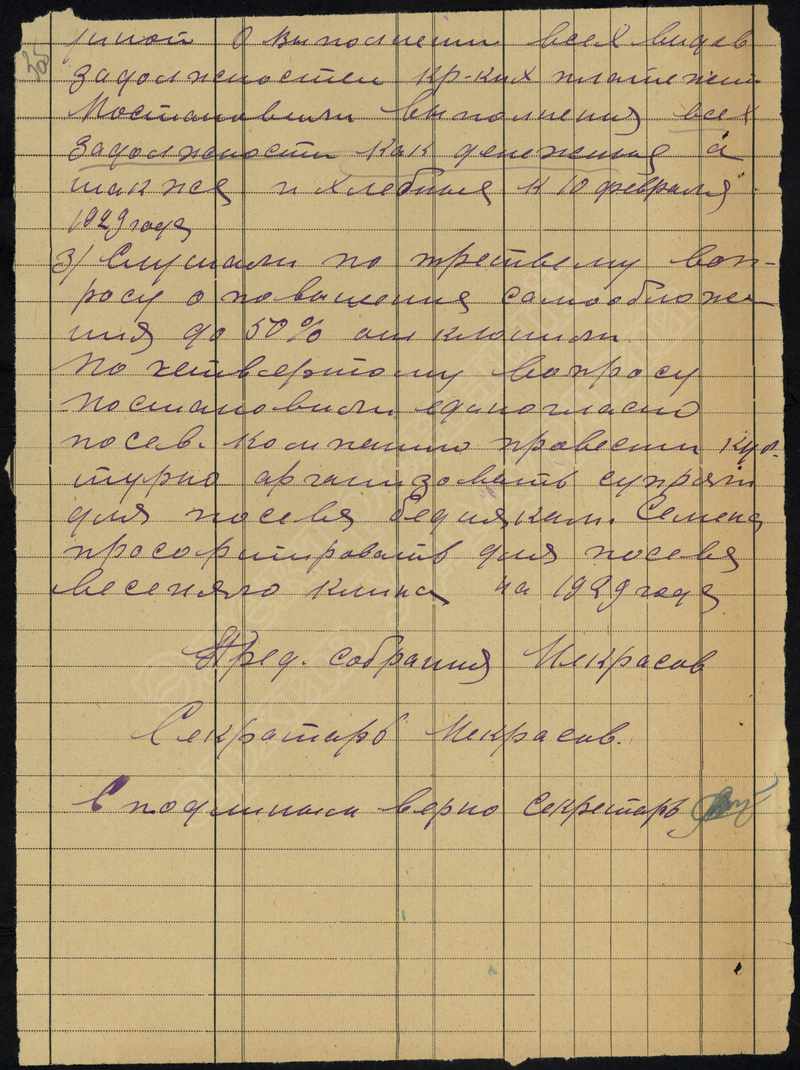 о выполнении всех видов
задолжностей кр-ких платежей
Постановили выполнения всех
задолжности как денежная а
также и хлебная к 10 февраля
1929 года
3/ Слушали по третьему воп-
росу о повышения самообложе
ния до 50% от
По четвертому вопросу
постановили единогласно
посев. компению провести куль
турно организовать супряги
для посева беднякам. Семена
просортировать для посева
весеняго клина на 1929 года
Пред. собрания Некрасов
Секратарь Некрасов.
С подлинным верно Секретарь